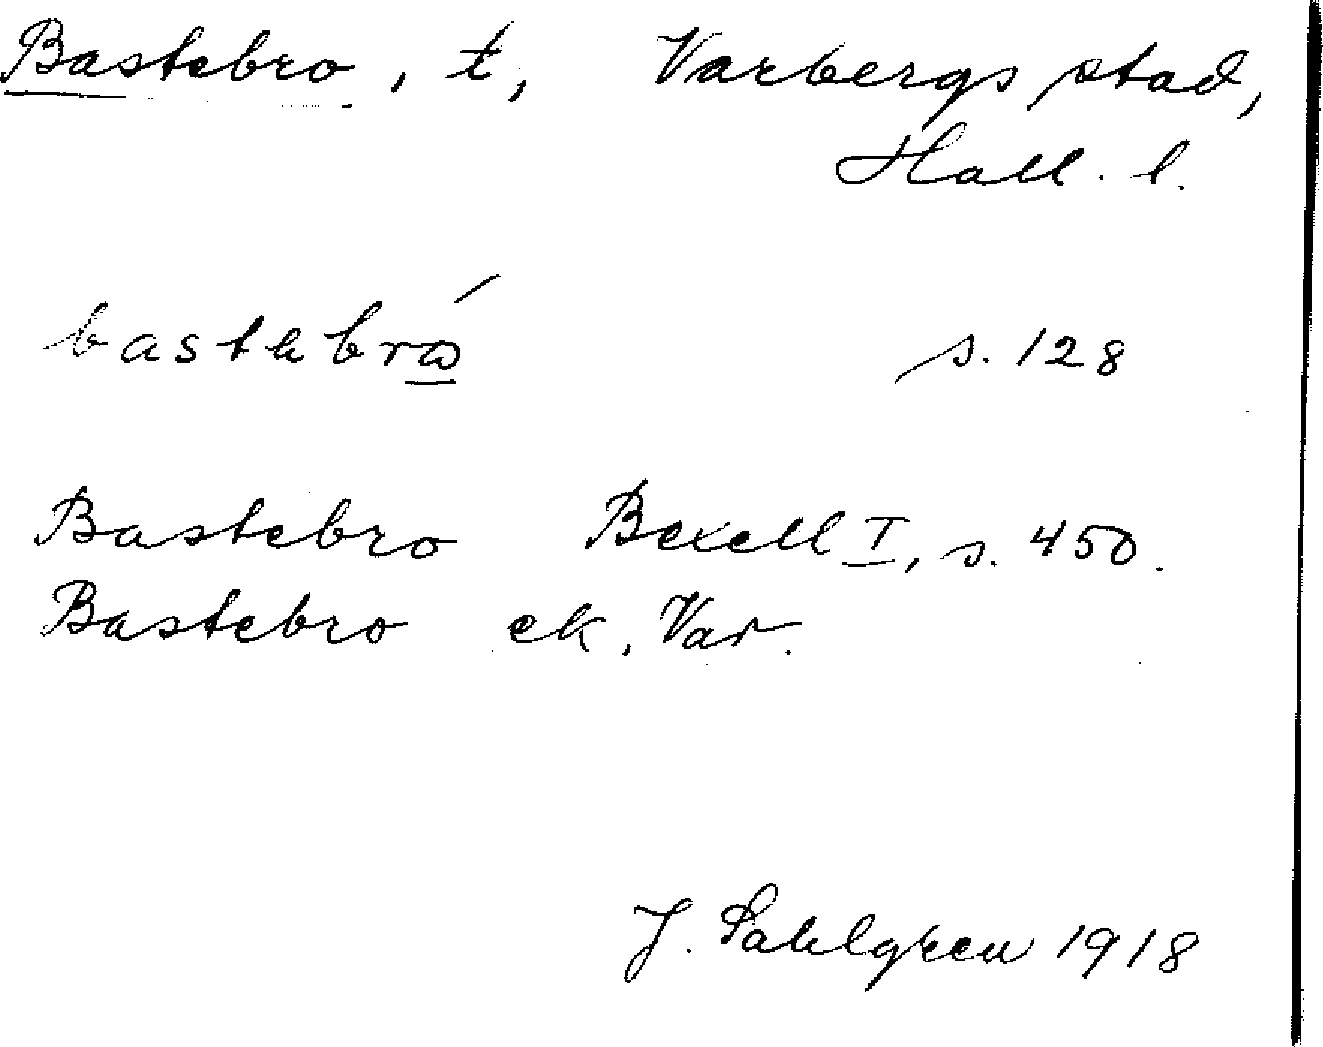 Bastebro, t, Varbergs stad,
Hall. l.
s. 128
Bastebro Bexell I, s. 450.
Bastebro ek. Var.
J. Sahlgren 1918